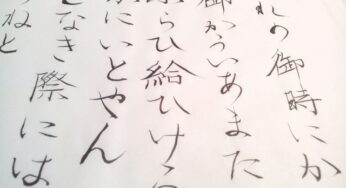 れの御時にか
御かういあまた
らひ給ひけ
かにいとやん
となき際には